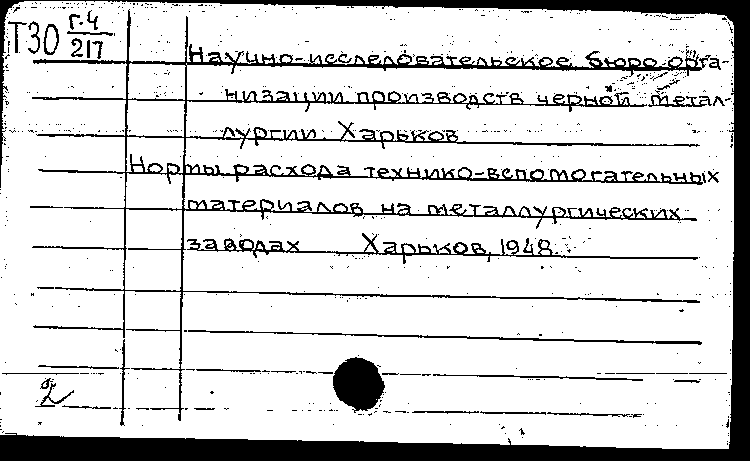 Т30 г.4
217
Научно-исследовательское бюро орга-
низации производств черной метал-
лургии. Харьков.
Нормы расхода технико-вспомогательных
материалов на металлургических
заводах Харьков, 1948.
2